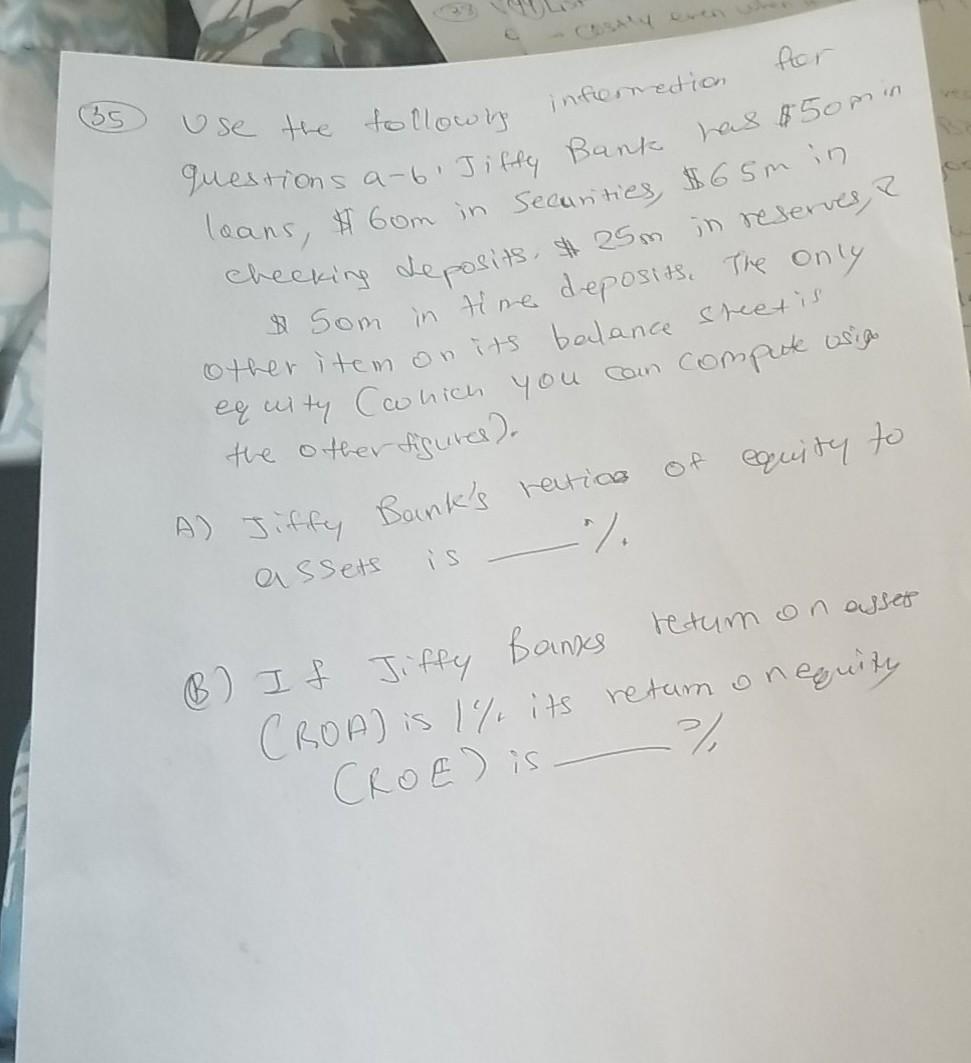 costly even when
35 Use the following information for
questions a-b. Jiffy Bank has $50m in
loans, $60m in Securities, $65m in
checking deposits. $25m in reserves, &
$50m in time deposits. The only
other item on its balance sheet is
equity (which you can compute using
the other figures).
A) Jiffy Bank's ratios of equity to
assets is ___%.
B) If Jiffy Banks return on asset
(ROA) is 1% its return on equity
(ROE) is ___%